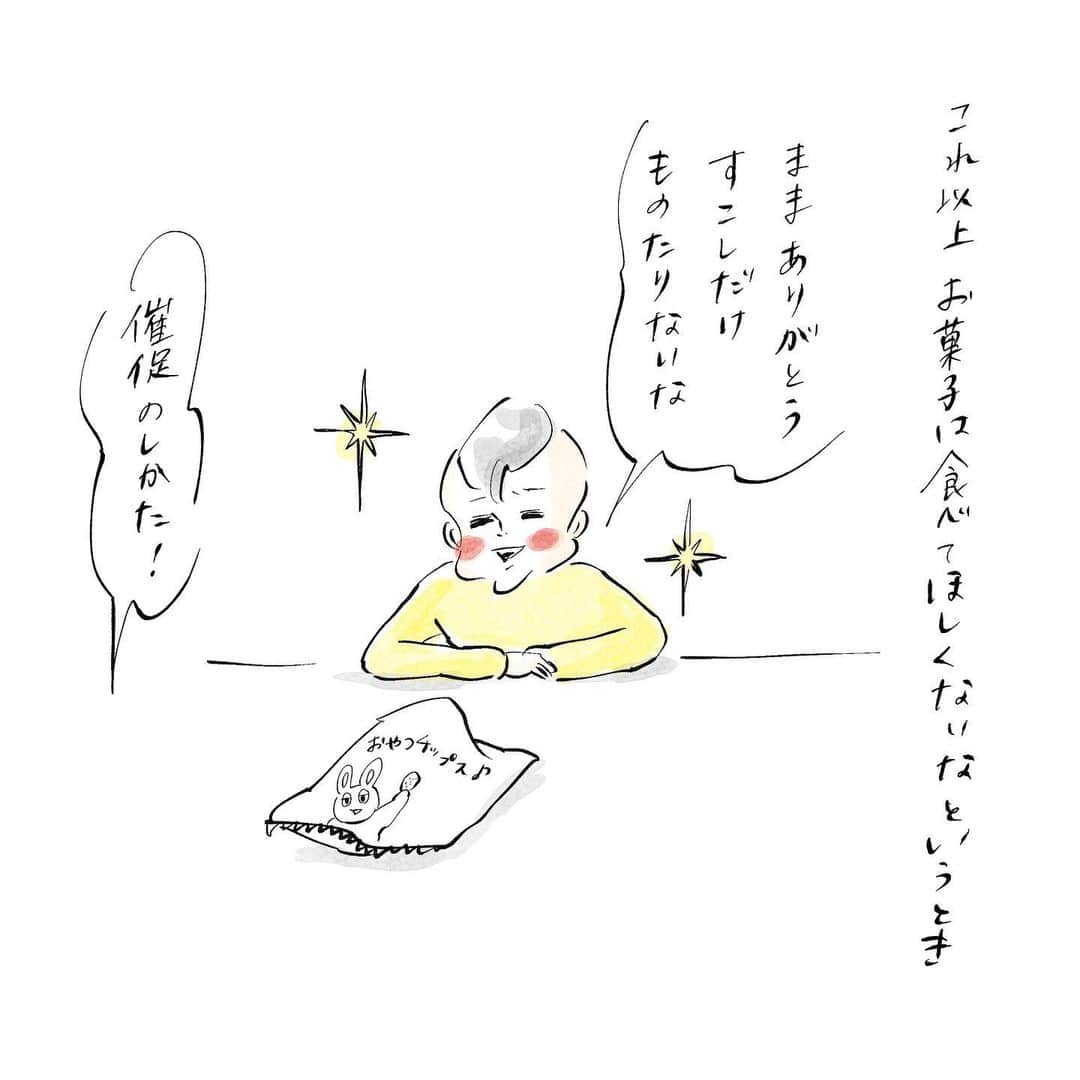 これ以上 お菓子は食べてほしくないなというとき
ままありがとう
すこしだけ
ものたりないな
催促のしかた!
おやつチップス♪